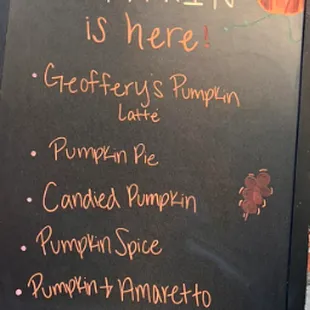 PUMPKIN
is here!
• Geoffery's Pumpkin
Latte
• Pumpkin Pie
• Candied Pumpkin
• Pumpkin Spice
• Pumpkin + Amaretto